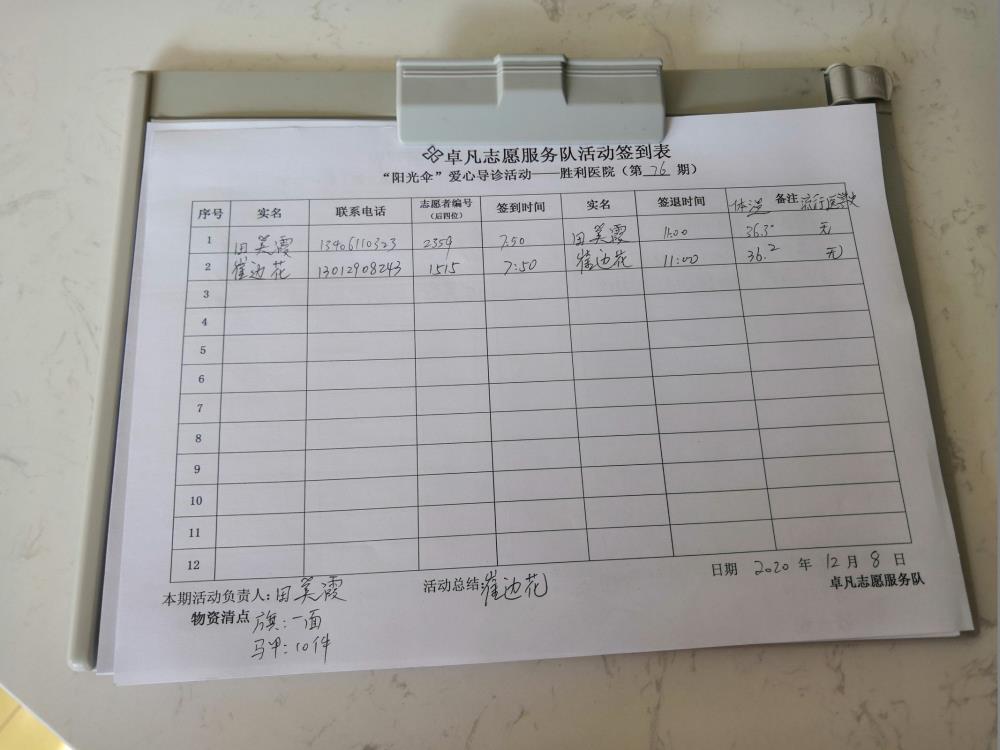 卓凡志愿服务队活动签到表
“阳光伞”爱心导诊活动——胜利医院（第 76 期）
序号 实名 联系电话 志愿者编号（后四位） 签到时间 实名 签退时间 体温 备注 流行医学史
1 田美霞 13406110323 2359 7:50 田美霞 11:00 36.3° 无
2 崔边花 13012908243 1515 7:50 崔边花 11:00 36.2 无
3
4
5
6
7
8
9
10
11
12
日期 2020 年 12 月 8 日
本期活动负责人：田美霞 活动总结 崔边花
卓凡志愿服务队
物资清点 旗：一面
马甲：10件